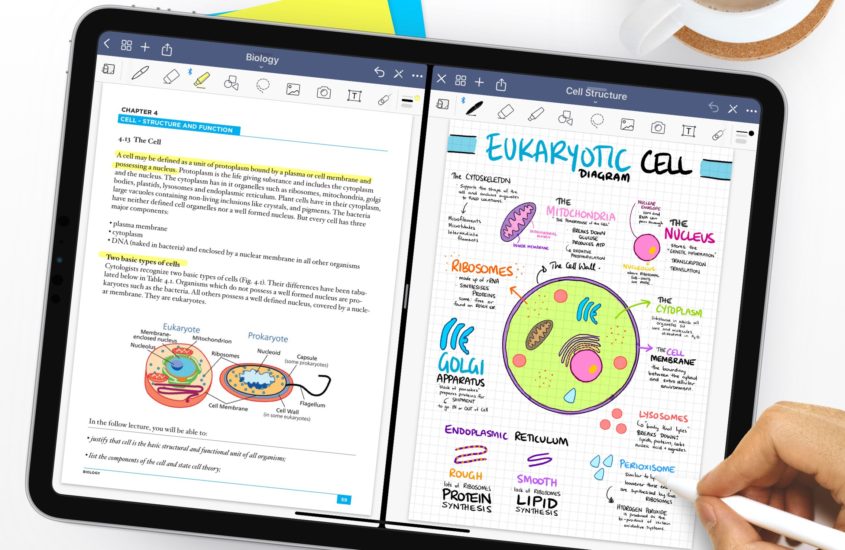 Biology
CHAPTER 4
CELL - STRUCTURE AND FUNCTION
4.13 The Cell
A cell may be defined as a unit of protoplasm bound by a plasma or cell membrane and
possessing a nucleus. Protoplasm is the life giving substance and includes the cytoplasm
and the nucleus. The cytoplasm has in it organelles such as ribosomes, mitochondria, golgi
bodies, plastids, lysosomes and endoplasmic reticulum. Plant cells have in their cytoplasm,
large vacuoles containing non-living inclusions like crystals, and pigments. The bacteria
have neither defined cell organelles nor a well formed nucleus. But every cell has three
major components:
• plasma membrane
• cytoplasm
• DNA (naked in bacteria) and enclosed by a nuclear membrane in all other organisms
Two basic types of cells
Cytologists recognize two basic types of cells (Fig. 4.1). Their differences have been tabu-
lated below in Table 4.1. Organisms which do not possess a well formed nucleus are pro-
karyotes such as the bacteria. All others possess a well defined nucleus, covered by a nucle-
ar membrane. They are eukaryotes.
Eukaryote
Prokaryote
Membrane-
enclosed nucleus
Nucleolus
Mitochondrion
Ribosomes
Nucleoid
Capsule
(some prokaryotes)
Flagellum
Cell Wall
(in some eukaryotes)
Cell Membrane
In the follow lecture, you will be able to:
• justify that cell is the basic structural and functional unit of all organisms;
• list the components of the cell and state cell theory;
BIOLOGY
Cell Structure
EUKARYOTIC CELL
DIAGRAM
The CYTOSKELETON
Supports the shape of the
cell and anchors organelles
to fixed locations
Microfilaments
Microtubules
Intermediate
filaments
THE
MITOCHONDRIA
BREAKS DOWN
GLUCOSE
PRODUCES ATP
INNER MEMBRANE
NUCLEAR
ENVELOPE
THE
NUCLEUS
STORES THE
"GENETIC INFORMATION"
TRANSCRIPTION
TRANSLATION
NUCLEOLUS
RIBOSOMES
made up of rRNA
SYNTHESISES
PROTEINS
some free or
found on ROUGH ER
The Cell Wall
THE
CYTOPLASM
GOLGI
APPARATUS
"stack of pancakes"
prepares proteins for
SHIPMENT
to go IN or OUT of Cell
THE CELL
MEMBRANE
the boundary
between the cytosol
and extra cellular
environment
LYSOSOMES
"body that lyses"
BREAKS DOWN:
lipids, proteins, carbs
nucleic acid + organelles
ENDOPLASMIC RETICULUM
ROUGH
lots of RIBOSOMES
PROTEIN
SYNTHESIS
SMOOTH
lack of RIBOSOMES
LIPID
SYNTHESIS
PEROXISOME
Similar to
however these
are synthesised by
RIBOSOMES
HYDROGEN PEROXIDE
is produced in the
by-product of certain
oxidative systems.